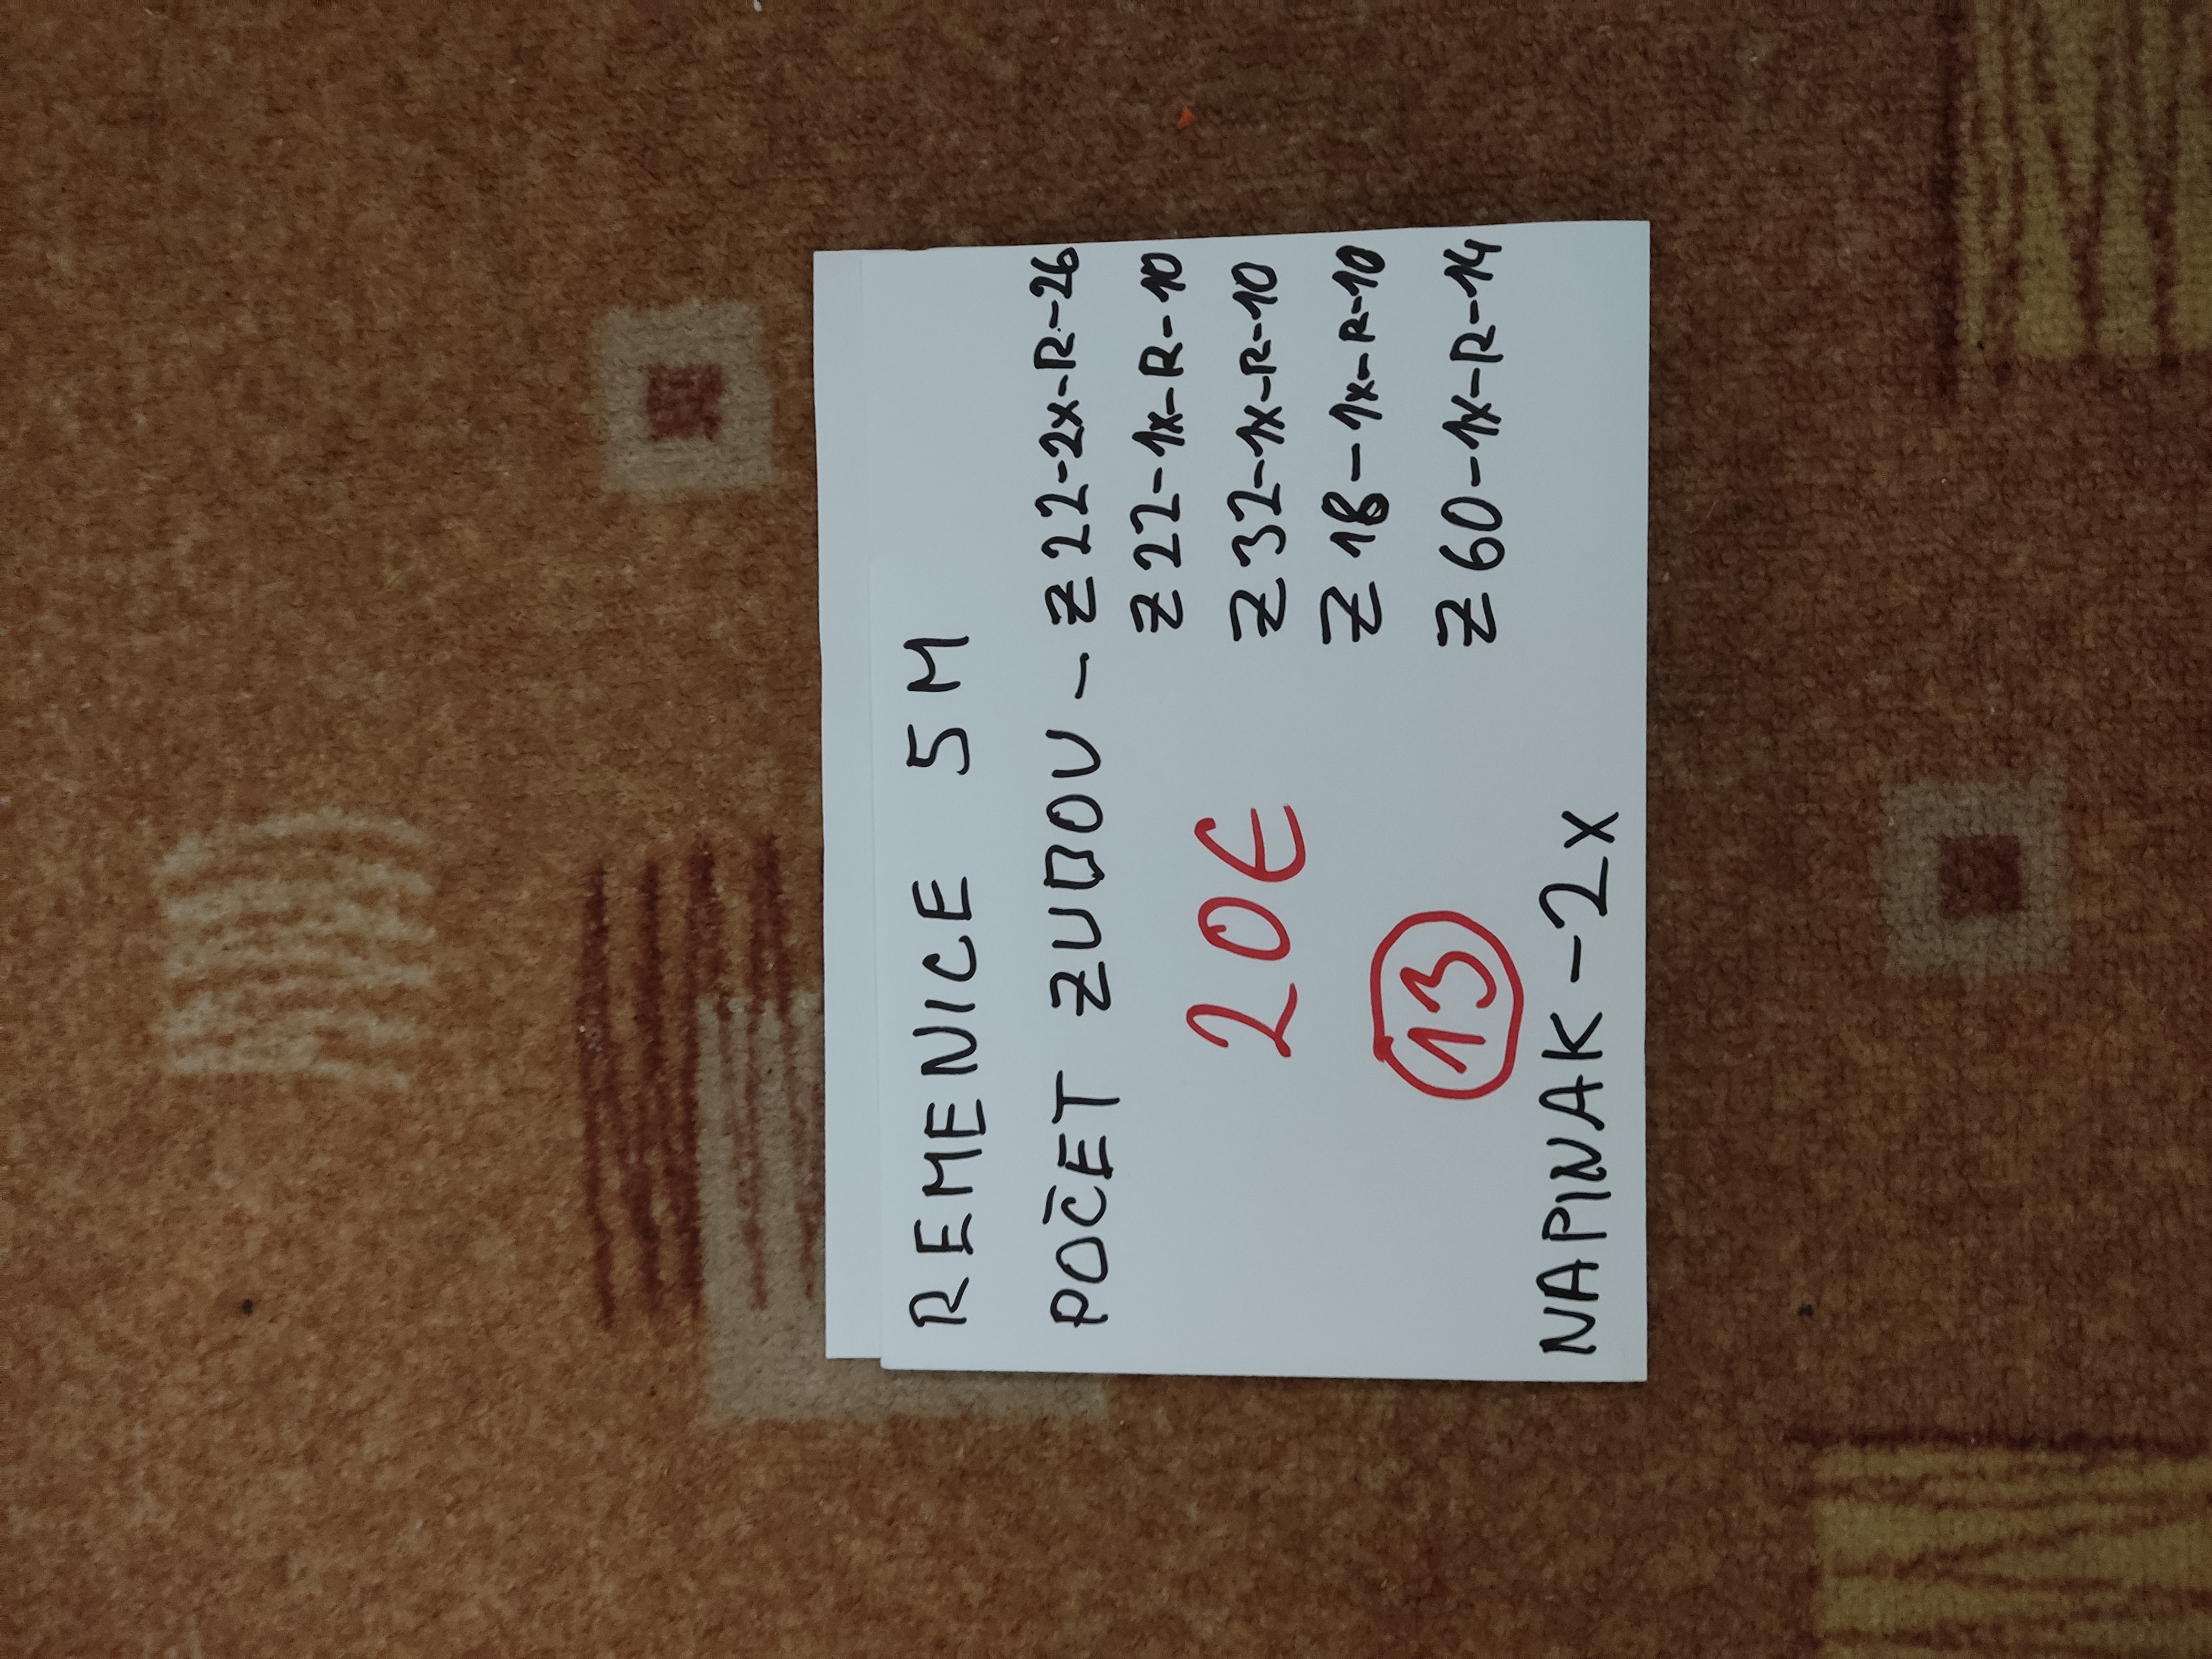 REMENICE 5M
POČET ZUBOV - Z 22-2x-R-26
Z 22-1x-R-10
Z 32-1x-R-10
Z 18-1x-R-10
Z 60-1x-R-14
20€
13
NAPINAK -2x